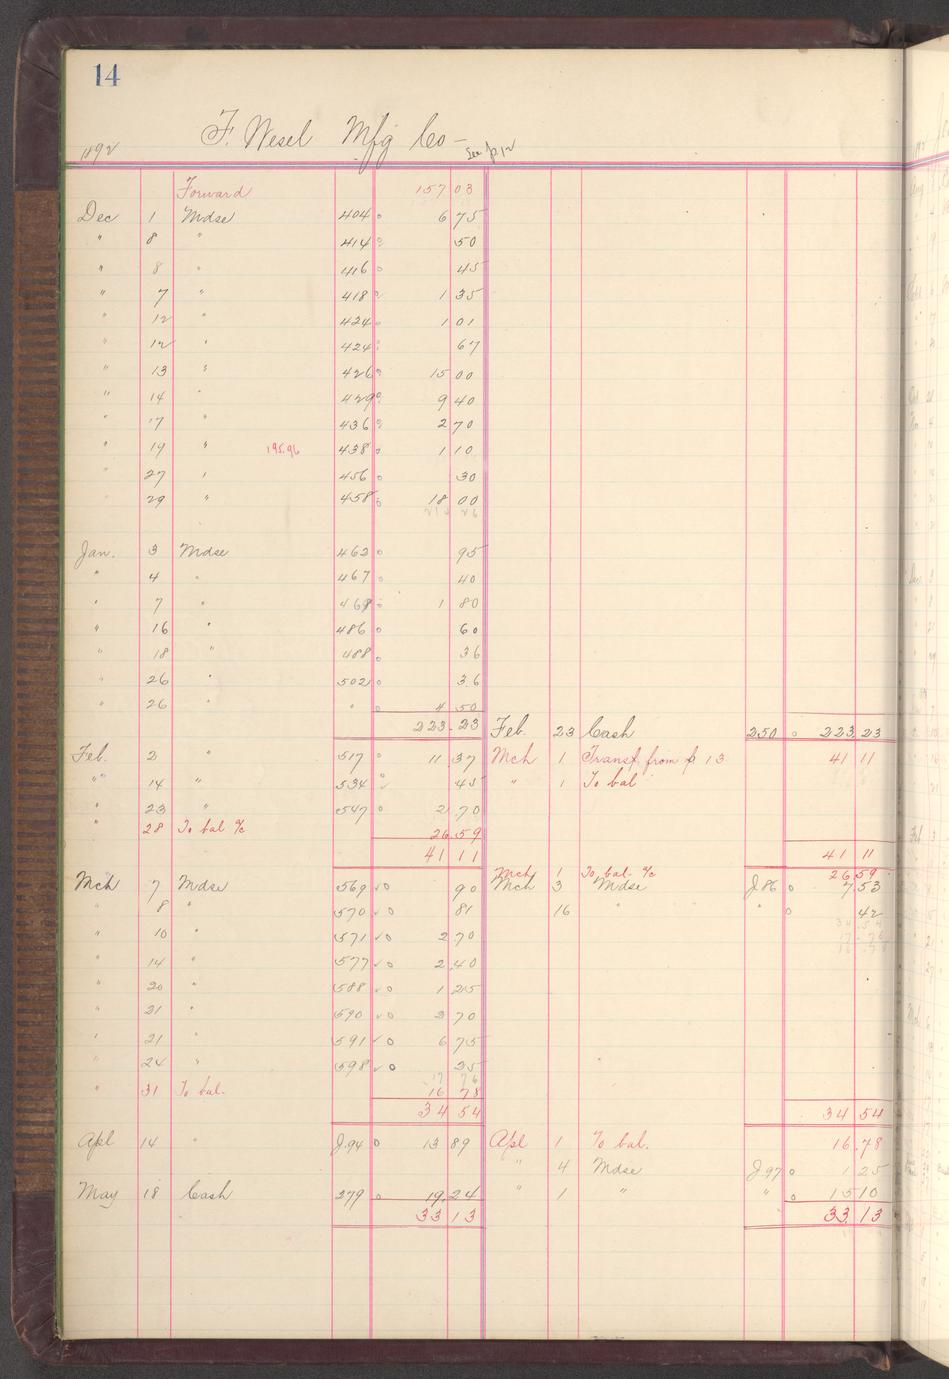 14
F. Wesel Mfg Co— See p 12
1892
Forward 157 03
Dec 1 Mdse 404 6 75
" 8 " 414 50
" 8 " 416 45
" 7 " 418 1 35
" 12 " 424 1 01
" 12 " 424 67
" 13 " 426 15 00
" 14 " 429 9 40
" 17 " 436 2 70
" 19 " 195.96 438 1 10
" 27 " 456 30
" 29 " 458 18 00
Jan. 3 Mdse 462 95
" 4 " 467 40
" 7 " 468 1 80
" 16 " 486 60
" 18 " 488 36
" 26 " 502 36
" 26 " " 4 50
223.23
Feb. 2 " 517 11 37
" 14 " 534 45
" 23 " 547 2 70
" 28 To bal % 26.59
41 11
Mch 7 Mdse 569 90
" 8 " 570 81
" 10 " 571 2 70
" 14 " 577 2 40
" 20 " 588 1 25
" 21 " 590 2 70
" 21 " 591 6 75
" 24 " 598 25
17 76
" 31 To bal. 16 78
34 54
Apl 14 " J.94 13 89
May 18 Cash 279 19.24
33 13
Feb. 23 Cash 250 223 23
Mch 1 Transf. from p 13 41 11
" 1 To bal
41 11
Mch 1 To bal. % 26 59
Mch 3 Mdse J 86 7 53
16 " " 42
34 54
Apl 1 To bal. 16.78
" 4 Mdse J.97 1 25
" 1 " " 15 10
33.13